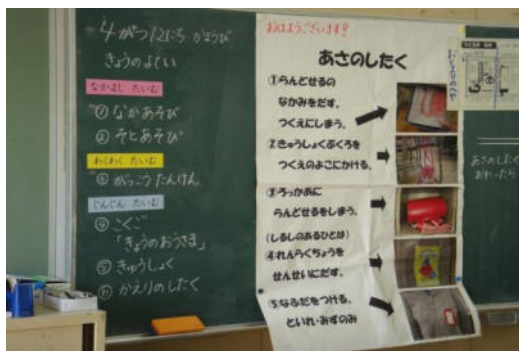 4がつ12にち かようび
きょうのよてい
なかよし たいむ
① なかあそび
② そとあそび
わくわく たいむ
③ がっこうたんけん
ぐんぐん たいむ
④ こくご
「きょうのおうさま」
⑤ きゅうしょく
⑥ かえりのしたく
おはようございます!
あさのしたく
①らんどせるの
なかみをだす。
つくえにしまう。
②きゅうしょくぶくろを
つくえのよこにかける。
③ろっかあに
らんどせるをしまう。
(しるしのあるひとは)
④れんらくちょうを
せんせいにだす。
⑤なふだをつける。
といれ・みずのみ
あさのしたく
おわったら